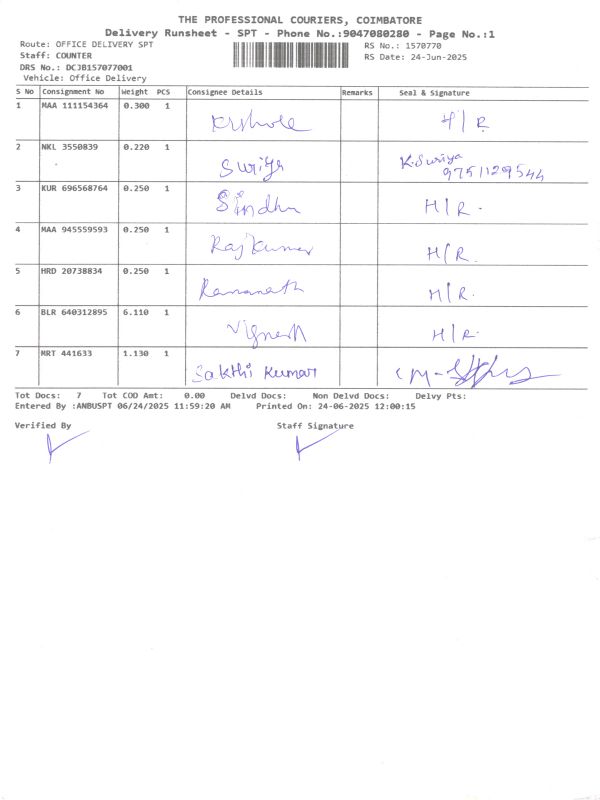 THE PROFESSIONAL COURIERS, COIMBATORE
Delivery Runsheet - SPT - Phone No.:9047080280 - Page No.:1
Route: OFFICE DELIVERY SPT RS No.: 1570770
Staff: COUNTER RS Date: 24-Jun-2025
DRS No.: DCJB157077001
Vehicle: Office Delivery
S No Consignment No Weight PCS Consignee Details Remarks Seal & Signature
1 MAA 111154364 0.300 1 H/R
2 NKL 3550839 0.220 1 Suriya K.Suriya
9751129544
3 KUR 696568764 0.250 1 Sindhu H/R.
4 MAA 945559593 0.250 1 Rajkumar H/R.
5 HRD 20738834 0.250 1 H/R.
6 BLR 640312895 6.110 1 Vignesh H/R.
7 MRT 441633 1.130 1 Sakthi Kumar
Tot Docs: 7 Tot COD Amt: 0.00 Delvd Docs: Non Delvd Docs: Delvy Pts:
Entered By :ANBUSPT 06/24/2025 11:59:20 AM Printed On: 24-06-2025 12:00:15
Verified By Staff Signature